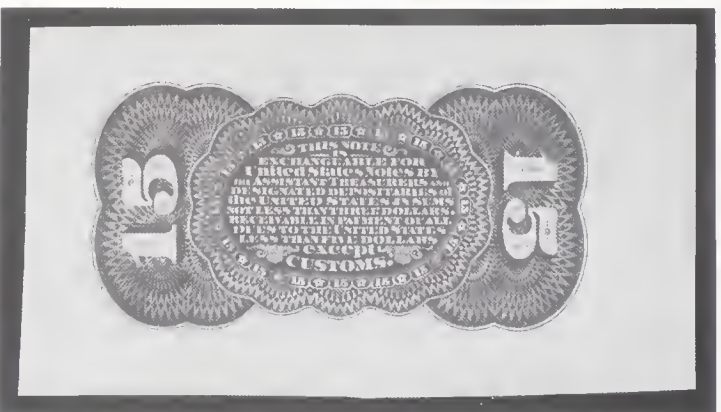 15
THIS NOTE
IS
EXCHANGEABLE FOR
United States Notes BY
THE ASSISTANT TREASURERS AND
DESIGNATED DEPOSITARIES OF
the UNITED STATES IN SUMS
NOT LESS THAN THREE DOLLARS.
RECEIVABLE IN PAYMENT OF ALL
DUES TO THE UNITED STATES
LESS THAN FIVE DOLLARS
except
CUSTOMS.
15